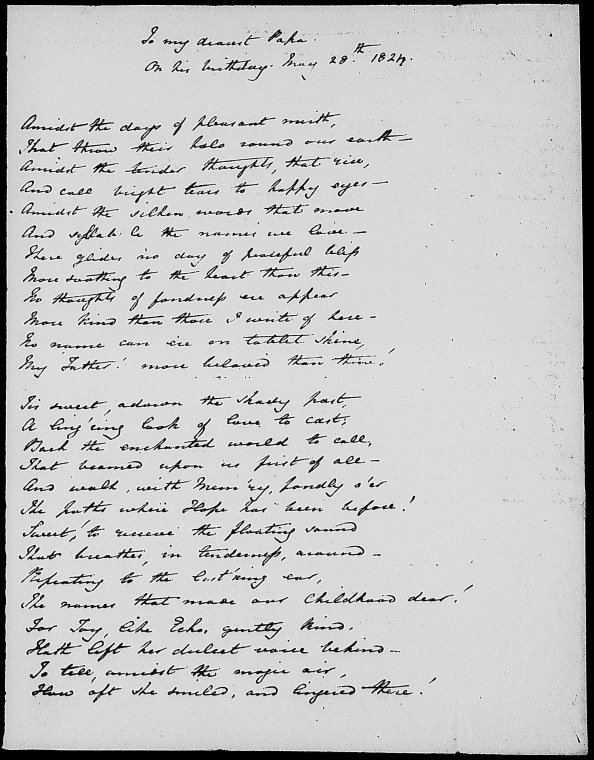 To my dearest Papa.
On his birthday. May 28th. 1824.
Amidst the days of pleasant mirth,
That throw their halo round our earth—
Amidst the tender thoughts, that rise,
And call bright tears to happy eyes—
Amidst the silken words that move
And syllable the names we love—
There glides no day of peaceful bliss
More soothing to the heart than this—
No thoughts of fondness ere appear
More kind than those I write of here—
No name can ere on tablet shine,
My Father! more beloved than thine!
Tis sweet, adown the shady past
A ling'ring look of love to cast;
Back the enchanted world to call,
That beamed upon us first of all—
And walk, with Mem'ry, fondly o'er
The paths where Hope has been before!
Sweet! to receive the floating sound
That breathes, in tenderness, around—
Repeating to the list'ning ear,
The names that made our Childhood dear!
For Joy, like Echo, gently kind,
Hath left her dulcet voice behind—
To tell, amidst the magic air,
How oft she smiled, and lingered there!